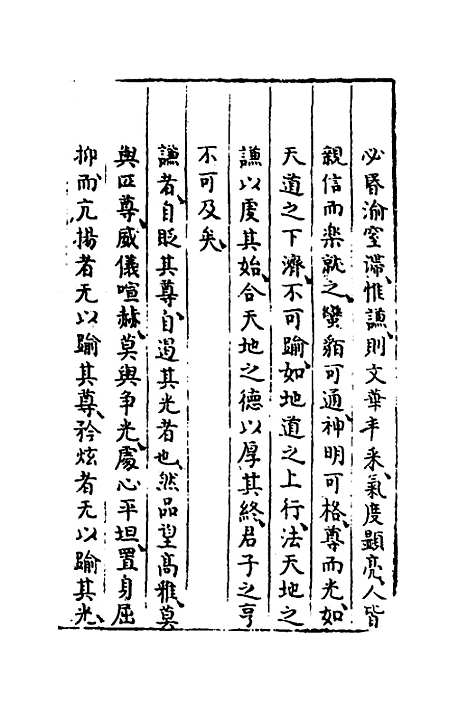 必昏渝窒滯、惟謙則文華丰采、氣度顯亮、人皆
親信而楽就之、蠻貊可通、神明可格、尊而光、如
天道之下濟、不可踰、如地道之上行、法天地之
謙以虔其始、合天地之德以厚其終、君子之亨
不可及矣、
謙者、自貶其尊、自遏其光者也、然品望高雅、莫
與匹尊、威儀喧赫、莫與争光、處心平坦、置身屈
抑、而亢揚者无以踰其尊、矜炫者无以踰其光、